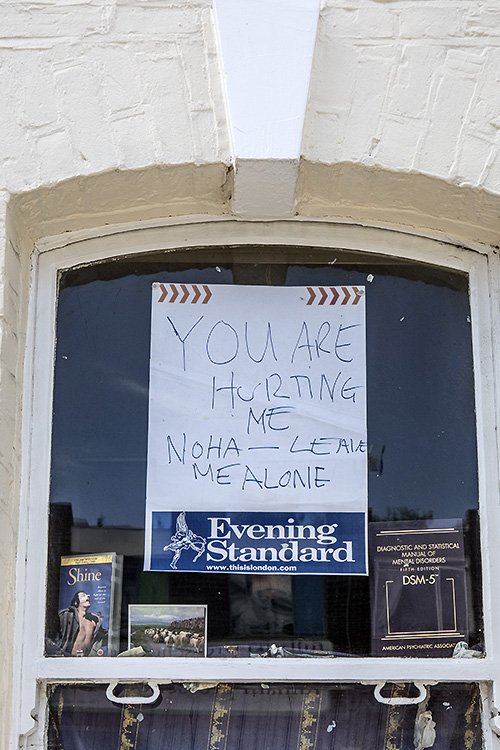 YOU ARE
HURTING
ME
NOHA — LEAVE
ME ALONE
Evening
Standard
www.thisislondon.com
Shine
DIAGNOSTIC AND STATISTICAL
MANUAL OF
MENTAL DISORDERS
FIFTH EDITION
DSM-5™
AMERICAN PSYCHIATRIC ASSOCIATION